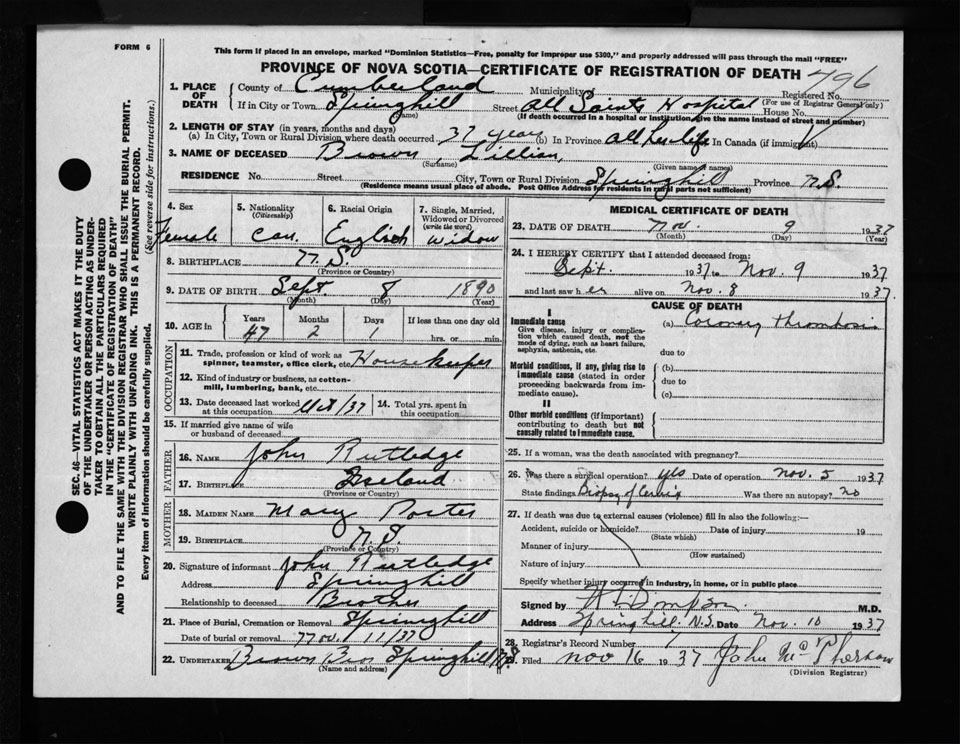 FORM 6
This form if placed in an envelope, marked "Dominion Statistics—Free, penalty for improper use $300," and properly addressed will pass through the mail "FREE"
PROVINCE OF NOVA SCOTIA—CERTIFICATE OF REGISTRATION OF DEATH 496
Registered No.
(For use of Registrar General only)
1. PLACE OF DEATH
County of Cumberland Municipality
If in City or Town Springhill Street All Saints Hospital House No.
(Name) (If death occurred in a hospital or institution, give the name instead of street and number)
2. LENGTH OF STAY (in years, months and days)
(a) In City, Town or Rural Division where death occurred 37 years (b) In Province All her life In Canada (if immigrant)
3. NAME OF DECEASED Brown, Lillian,
(Surname) (Given name or names)
RESIDENCE No. Street City, Town or Rural Division Springhill Province N.S.
(Residence means usual place of abode. Post Office Address for residents in rural parts not sufficient)
4. Sex Female
5. Nationality (Citizenship) Can.
6. Racial Origin English
7. Single, Married, Widowed or Divorced (write the word) Widow
8. BIRTHPLACE N.S.
(Province or Country)
9. DATE OF BIRTH Sept. 8 1890
(Month) (Day) (Year)
10. AGE in Years Months Days If less than one day old
47 2 1 hrs. or min.
OCCUPATION
11. Trade, profession or kind of work as spinner, teamster, office clerk, etc. Housekeeper
12. Kind of industry or business, as cotton-mill, lumbering, bank, etc.
13. Date deceased last worked at this occupation Oct/37
14. Total yrs. spent in this occupation
15. If married give name of wife or husband of deceased
FATHER
16. NAME John Rutledge
17. BIRTHPLACE Ireland
(Province or Country)
MOTHER
18. MAIDEN NAME Mary Porter
19. BIRTHPLACE N.S.
(Province or Country)
20. Signature of informant John Rutledge
Address Springhill
Relationship to deceased Brother
21. Place of Burial, Cremation or Removal Springhill
Date of burial or removal Nov. 11/37
22. UNDERTAKER Brown Bros Springhill N.S.
(Name and address)
MEDICAL CERTIFICATE OF DEATH
23. DATE OF DEATH Nov. 9 1937
(Month) (Day) (Year)
24. I HEREBY CERTIFY that I attended deceased from:
Sept. 1937 to Nov. 9 1937
and last saw her alive on Nov. 8 1937.
CAUSE OF DEATH
I
Immediate cause
Give disease, injury or complication which caused death, not the mode of dying, such as heart failure, asphyxia, asthenia, etc.
(a) Coronary thrombosis
due to
Morbid conditions, if any, giving rise to immediate cause (stated in order proceeding backwards from immediate cause).
(b)
due to
(c)
II
Other morbid conditions (if important) contributing to death but not causally related to immediate cause.
25. If a woman, was the death associated with pregnancy?
26. Was there a surgical operation? yes Date of operation Nov. 5 1937
State findings Biopsy of Cervix Was there an autopsy? no
27. If death was due to external causes (violence) fill in also the following:—
Accident, suicide or homicide? Date of injury 19
(State which)
Manner of injury
(How sustained)
Nature of injury
Specify whether injury occurred in industry, in home, or in public place
Signed by M.D.
Address Springhill, N.S. Date Nov. 10 1937
28. Registrar's Record Number
29. Filed Nov 16 1937 John McPherson
(Division Registrar)
SEC. 46—VITAL STATISTICS ACT MAKES IT THE DUTY
OF THE UNDERTAKER OR PERSON ACTING AS UNDER-
TAKER TO OBTAIN ALL THE PARTICULARS REQUIRED
IN THE "CERTIFICATE OF REGISTRATION OF DEATH"
AND TO FILE THE SAME WITH THE DIVISION REGISTRAR WHO SHALL ISSUE THE BURIAL PERMIT.
WRITE PLAINLY WITH UNFADING INK. THIS IS A PERMANENT RECORD.
Every item of information should be carefully supplied. (See reverse side for instructions.)